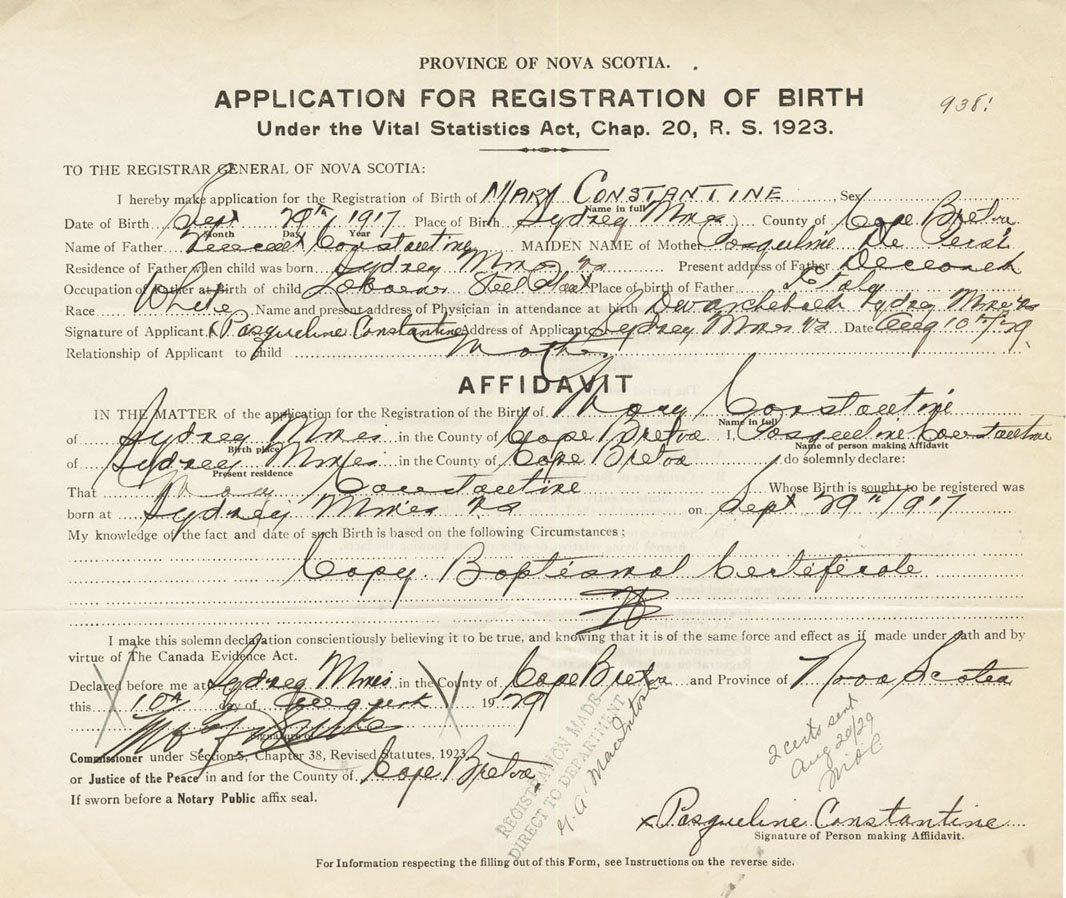 PROVINCE OF NOVA SCOTIA.
APPLICATION FOR REGISTRATION OF BIRTH
938
Under the Vital Statistics Act, Chap. 20, R. S. 1923.
TO THE REGISTRAR GENERAL OF NOVA SCOTIA:
I hereby make application for the Registration of Birth of MARY CONSTANTINE, Sex
Name in full
Date of Birth Sept 29th 1917 Place of Birth Sydney Mines County of Cape Breton
Month Day Year
Name of Father Constantine MAIDEN NAME of Mother Pasquline De Persi
Residence of Father when child was born Sydney Mines NS Present address of Father Deceased
Occupation of Father at Birth of child Laborer Steel Plant Place of birth of Father Italy
Race White Name and present address of Physician in attendance at birth Sydney Mines NS
Signature of Applicant x Pasqueline Constantine Address of Applicant Sydney Mines NS Date Aug 10th/29.
Relationship of Applicant to child Mother
AFFIDAVIT
IN THE MATTER of the application for the Registration of the Birth of Mary Constantine
Name in full
of Sydney Mines in the County of Cape Breton I, Pasqueline Constantine
Birth place Name of person making Affidavit
of Sydney Mines in the County of Cape Breton do solemnly declare:
Present residence
That Mary Constantine Whose Birth is sought to be registered was
born at Sydney Mines NS on Sept 29th 1917
My knowledge of the fact and date of such Birth is based on the following Circumstances:
Copy Baptismal Certificate
I make this solemn declaration conscientiously believing it to be true, and knowing that it is of the same force and effect as if made under oath and by
virtue of The Canada Evidence Act.
Declared before me at Sydney Mines in the County of Cape Breton and Province of Nova Scotia
this 10th day of August 1929
Signature of
Commissioner under Section 5, Chapter 38, Revised Statutes, 1923
or Justice of the Peace in and for the County of Cape Breton
If sworn before a Notary Public affix seal.
REGISTRATION MADE
DIRECT TO DEPARTMENT
MacIntosh
2 certs sent
Aug 20/29
x Pasqueline Constantine
Signature of Person making Affidavit.
For Information respecting the filling out of this Form, see Instructions on the reverse side.